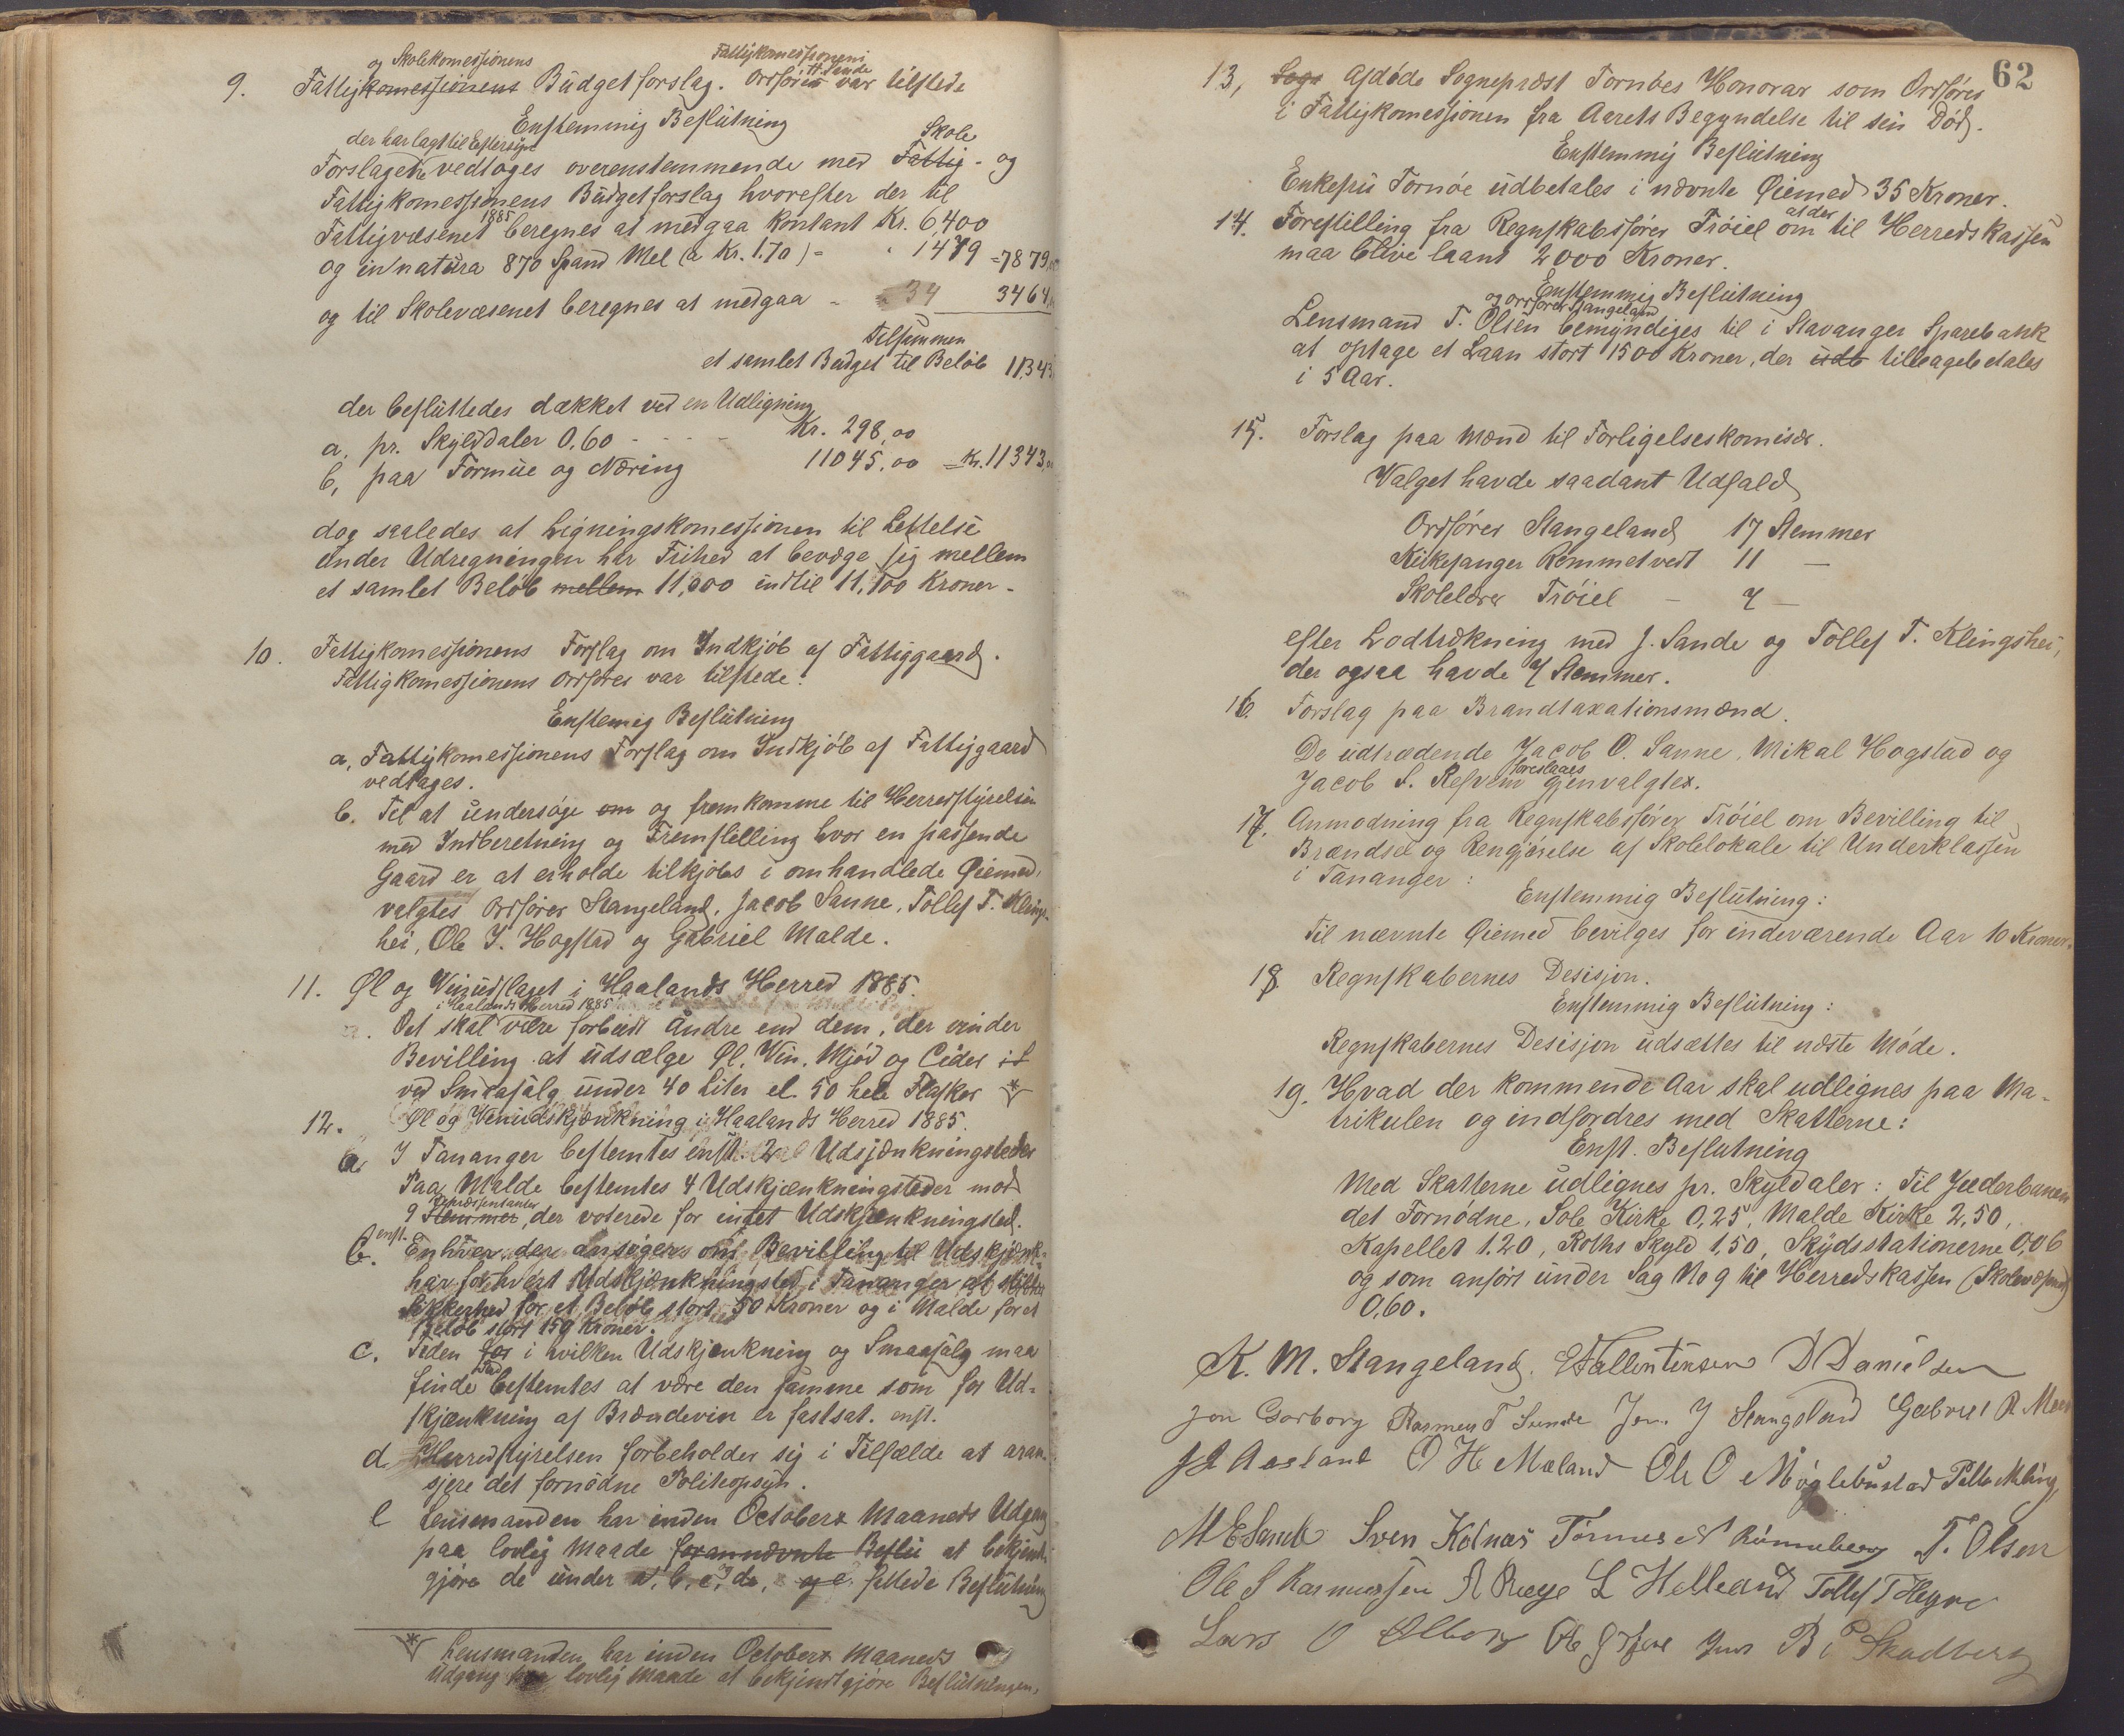 og Skolekomessionens
Fattigkomessionens
9. Fattigkomessionens Budgetforslag. Ordfören H. Sande var tilstede
Enstemmig Beslutning
der har lagt til Eftersyn
Forslaget vedtages overenstemmende med Fattig- Skole og
Fattigkomessionens Budgetforslag hvorefter der til
Fattigvæsenet 1885 beregnes at medgaa kontant Kr. 6,400
og in natura 870 Spand Mel (a Kr. 1.70) = " 1479 = 7879,00
og til Skolevæsenet beregnes at medgaa - 34 3464,
Tilsammen
et samlet Budget til Beløb 11,343
der besluttedes dækket ved en Udligning
a, pr. Skylddaler 0,60 - - - - Kr. 298,00
b, paa Formue og Næring 11045,00 = Kr. 11343,00
dog saaledes at Ligningskomessionen til Lettelse
under Udregningen har Frihed at bevæge sig mellem
et samlet Beløb mellem 11,000 indtil 11,100 Kroner -
10. Fattigkomessionens Forslag om Indkjöb af Fattiggaard.
Fattigkomessionens Ordförer var tilstede.
Enstemig Beslutning
a, Fattigkomessionens Forslag om Indkjöb af Fattiggaard
vedtages.
b. Til at undersøge om og fremkomme til Herredstyrelsen
med Indberetning og Fremstilling hvor en passende
Gaard er at erholde tilkjöbs i omhandlede Øiemed,
valgtes Ordförer Stangeland, Jacob Sanne, Tollef T. Klings-
hei, Ole J. Hogstad og Gabriel Malde.
11. Øl og Vinudslaget i Haalands Herred 1885.
i Haalands Herred 1885
a. Det skal være forbudt andre end dem, der vinder
Bevilling at udsælge Øl, Vin, Mjöd og Cider
ved Smaasalg under 40 Liter el. 50 hele Flasker
12. Øl og Vinudskjænkning i Haalands Herred 1885.
a. I Tananger bestemtes enst. 2 Udsjænkningsteder
Paa Malde bestemtes 4 Udskjænkningsteder mod
9 Stemmer Repræsentanter, der voterede for intet Udskjænkningsted.
b. enst. Enhver der ansøger om Bevilling til Udskjænk-
har for hvert Udskjænkningsted i Tananger at stille
Sikkerhed for et Beløb stort 50 Kroner og i Malde for et
Beløb stort 150 Kroner.
c. Tiden for i hvilken Udskjænkning og Smaasalg maa
finde Sted bestemtes at være den samme som for Ud-
skjænkning af Brændevin er fastsat. enst.
d. Herredstyrelsen forbeholder sig i Tilfælde at aran-
sjere det fornödne Politiopsyn.
e Lensmanden har inden Octobers Maaneds Udgang
paa lovlig Maade forannævnte Beslu at bekjendt-
gjøre de under a, b, c, d, og e. fattede Beslutning
Lensmanden har inden Octobers Maaneds
Udgang paa lovlig Maade at bekjendtgjøre Beslutningen.
62
13, Sogn Afdöde Sognepræst Tornöes Honorar som Ordförer
i Fattigkomessionen fra Aarets Begyndelse til sin Död.
Enstemmig Beslutning
Enkefru Tornöe udbetales i nævnte Øiemed 35 Kroner.
14. Forestilling fra Regnskabsförer Tröiel om at der til Herredskassen
maa blive laant 2000 Kroner.
Enstemmig Beslutning
og ordförer Stangeland
Lensmand T. Olsen bemyndiges til i Stavanger Sparebank
at optage et Laan stort 1500 Kroner, der udb tilbagebetales
i 5 Aar.
15. Forslag paa Mænd til Forligelseskomisær.
Valget havde saadant Udfald
Ordförer Stangeland 17 Stemmer
Kirkesanger Rommetvedt 11 —
Skolelærer Tröiel — 7 —
efter Lodtrækning med J. Sande og Tollef T. Klingshei,
der ogsaa havde 7 Stemmer.
16. Forslag paa Brandtaxationsmænd.
De udtrædende Jacob O. Sanne, Mikal Hogstad og
Jacob S. Refvem foreslaaes gjenvalgtes.
17. Anmodning fra Regnskabsförer Tröiel om Bevilling til
Brændsel og Rengjørelse af Skolelokale til Underklassen
i Tananger:
Enstemmig Beslutning:
Til nævnte Øiemed bevilges for indeværende Aar 10 Kroner.
18 Regnskabernes Desisjon.
Enstemmig Beslutning:
Regnskabernes Desisjon udsættes til næste Møde.
19. Hvad der kommende Aar skal udlignes paa Ma-
trikulen og indfordres med Skatterne:
Enst. Beslutning
Med Skatterne udlignes pr. Skyldaler: Til Jæderbanen
det Fornödne, Sole Kirke 0,25, Malde Kirke 2,50,
Kapellet 1.20, Roths Skyld 1,50, Skydsstationerne 0,06
og som anfört under Sag No 9 til Herredskassen (Skolevæsenet)
0,60.
K. M. Stangeland. E Fallentinsen D Danielsen
Jon Gorborg Rasmus T Sunde Jon. J Stangeland Gabriel R. Meer
J J Aasland O. H. Mæland Ole O Møglebustad Pelle Meling,
M E Sande Sven Kolnæs Tönnes N Rünneberg T. Olsen
Ole S Rasmussen A Ræge L Helleland Tollef T Hegre
Lars O Ølborg B P Skadberg